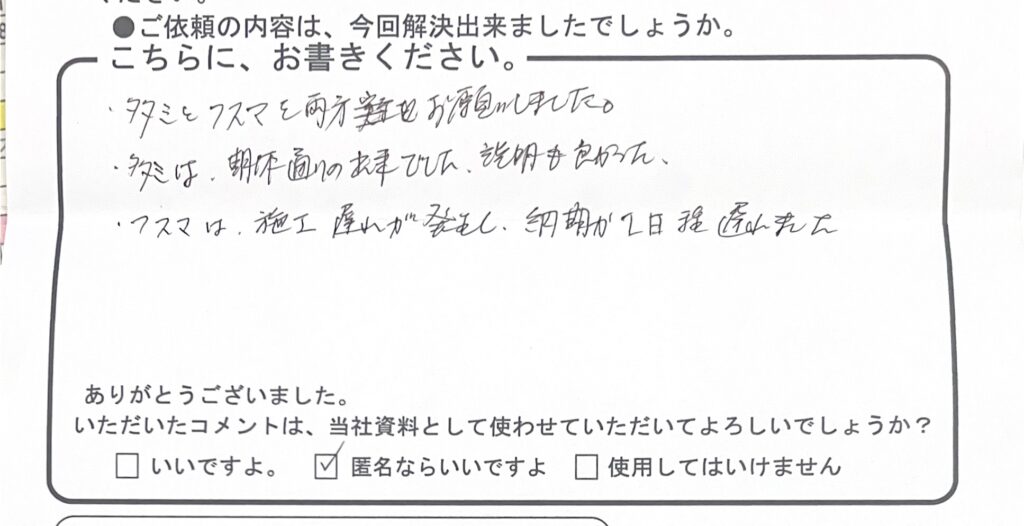 ください。
●ご依頼の内容は、今回解決出来ましたでしょうか。
こちらに、お書きください。
・タタミとフスマを両方お願いしました。
・タタミは、期待通りの出来でした、説明も良かった、
・フスマは、施工遅れが発生し、納期が1日程遅れました
ありがとうございました。
いただいたコメントは、当社資料として使わせていただいてよろしいでしょうか？
□ いいですよ。 ☑ 匿名ならいいですよ □ 使用してはいけません